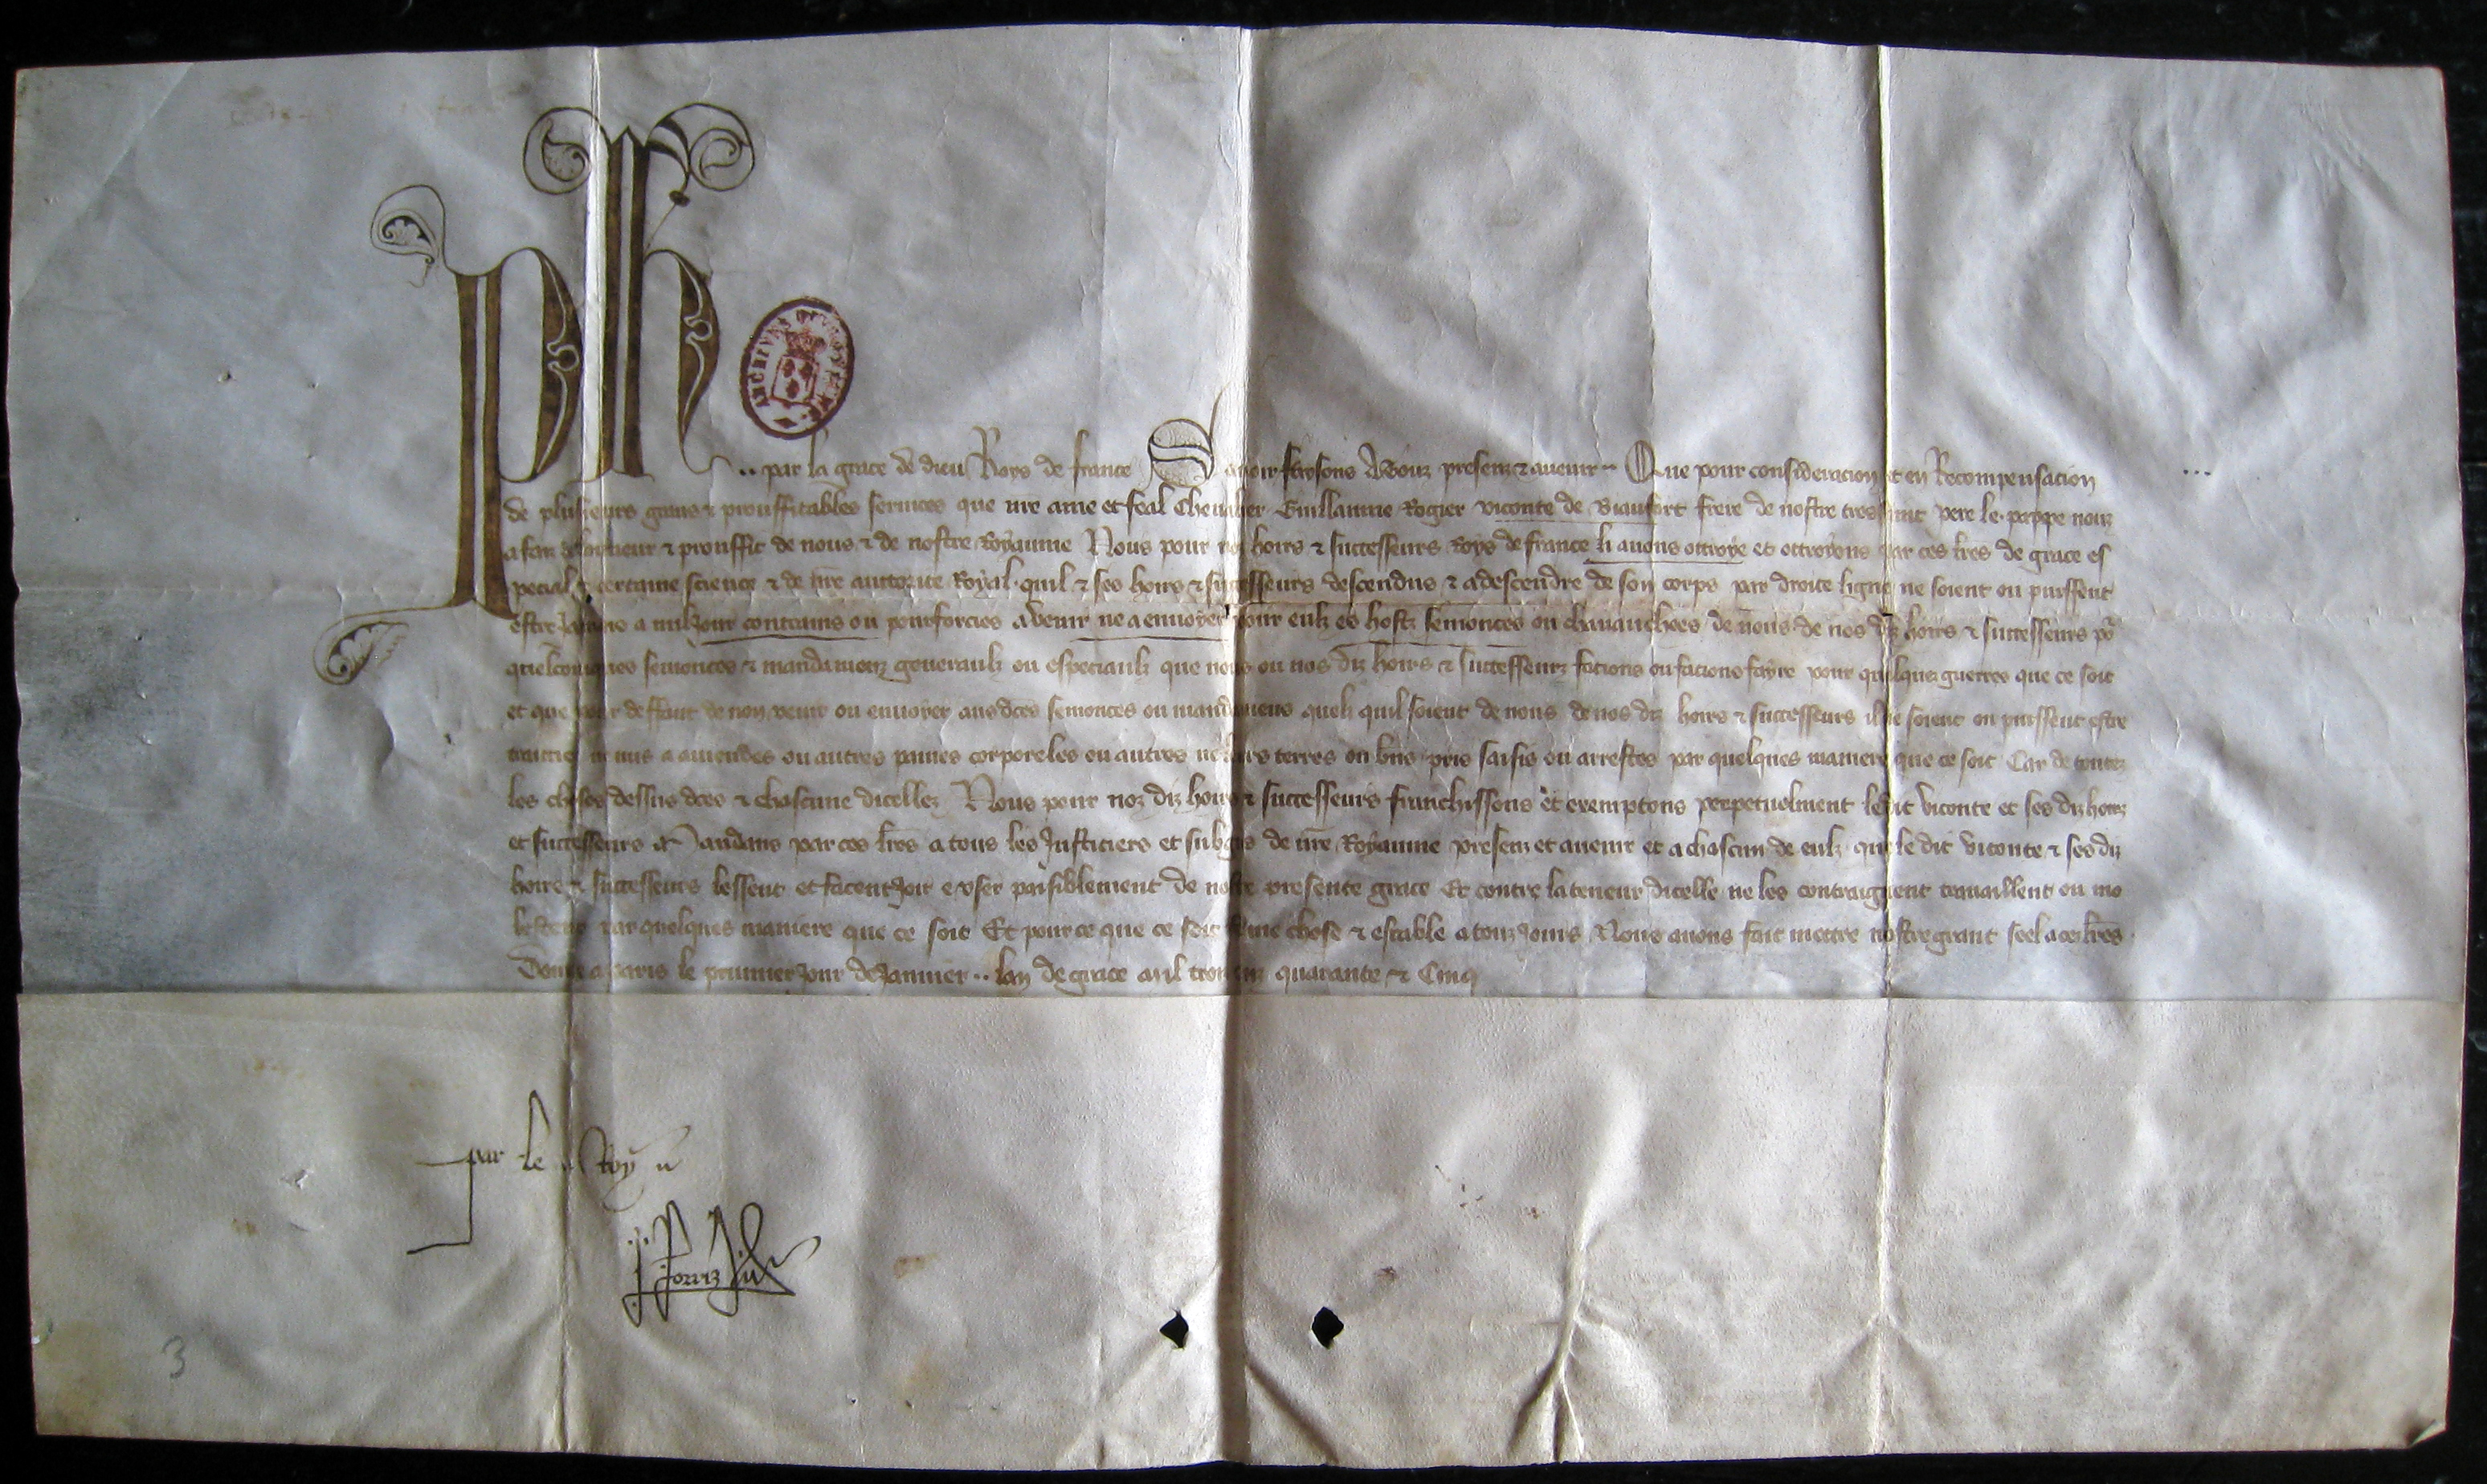 Ph .. par la grace de dieu Roys de france Savoir faisons a touz presenz & avenir .. Que pour consideracion et en Recompensacion
de plusieurs grans & prouffitables services que nre ame et feal Chevalier Guillaume Rogier viconte de Biaufort frere de nostre tres saint pere le pappe nouz
a faiz a lonneur & prouffit de nous & de nostre Royaume Nous pour noz hoirs & successeurs Roys de france li avons ottroye et ottroyons par ces lres de grace es
pecial & certaine science & de nre auctorite Royal quil & ses hoirs & successeurs descendus & a descendre de son corps par droite ligne ne soient ou puissent
estre jamaie a nul jour contrains ou pourforcies a venir ne a envoyer pour eulz es hostz semonces ou chevauchees de nous de nos diz hoirs & successeurs por
quelconques semonces & mandemenz generaulz ou especiaulz que nous ou nos diz hoirs & successeurz facions ou facions fayre pour quelquez guerres que ce soit
et que pour deffaut de non venir ou envoyer aus dces semonces ou mandemens quelz quil soient de nous de nos diz hoirs & successeurs il ne soient ou puissent estre
ne mis a amendes ou autres paines corporeles ou autres ne leurs terres ou biens pris saisis ou arrestes par quelques maniere que ce soit Car de toutez
les choses dessus dces & chascune dicellez Nous pour noz diz hoirs & successeurs franchissons et exemptons perpetuelment ledit viconte et ses diz hoirz
et successeurs Mandans par ces lres a tous les Justiciers et subgis de nre Royaume presenz et avenir et a chascun de eulz que le dit viconte & ses diz
hoirs & successeurs lessent et facent joir e user paisiblement de nostre presente grace Et contre la teneur dicelle ne les contraignent travaillent ou mo
lestent par quelques maniere que ce soit Et pour ce que ce soit ferme chose & estable a touz jours Nous avons fait mettre nostre grant seel a ces lres
Donne a Paris le premier jour de Janvier .. lan de grace mil trois cenz quarante & Cinq
par le Roy
3